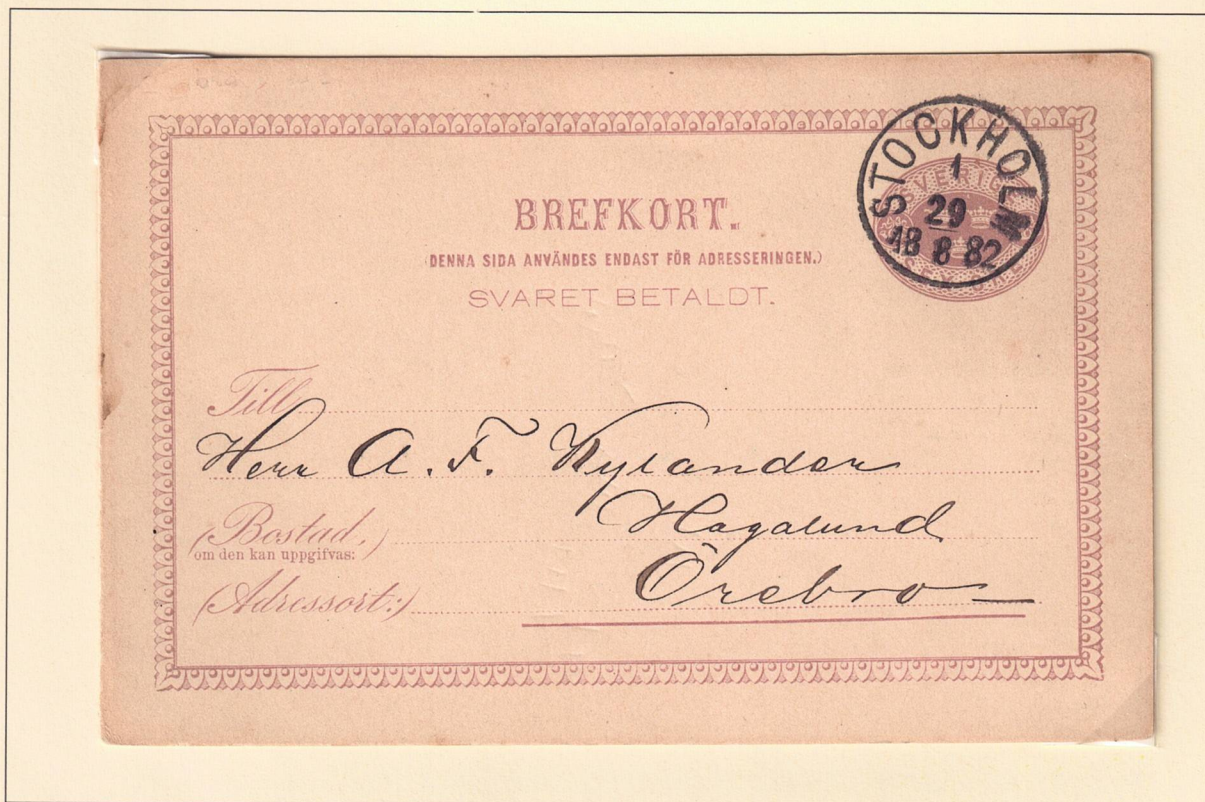 BREFKORT.
(DENNA SIDA ANVÄNDES ENDAST FÖR ADRESSERINGEN.)
SVARET BETALDT.
STOCKHOLM
1
29
18 8 82
Till
Herr A. F. Nylander
(Bostad,)
om den kan uppgifvas:
Hagalund
(Adressort:)
Örebro